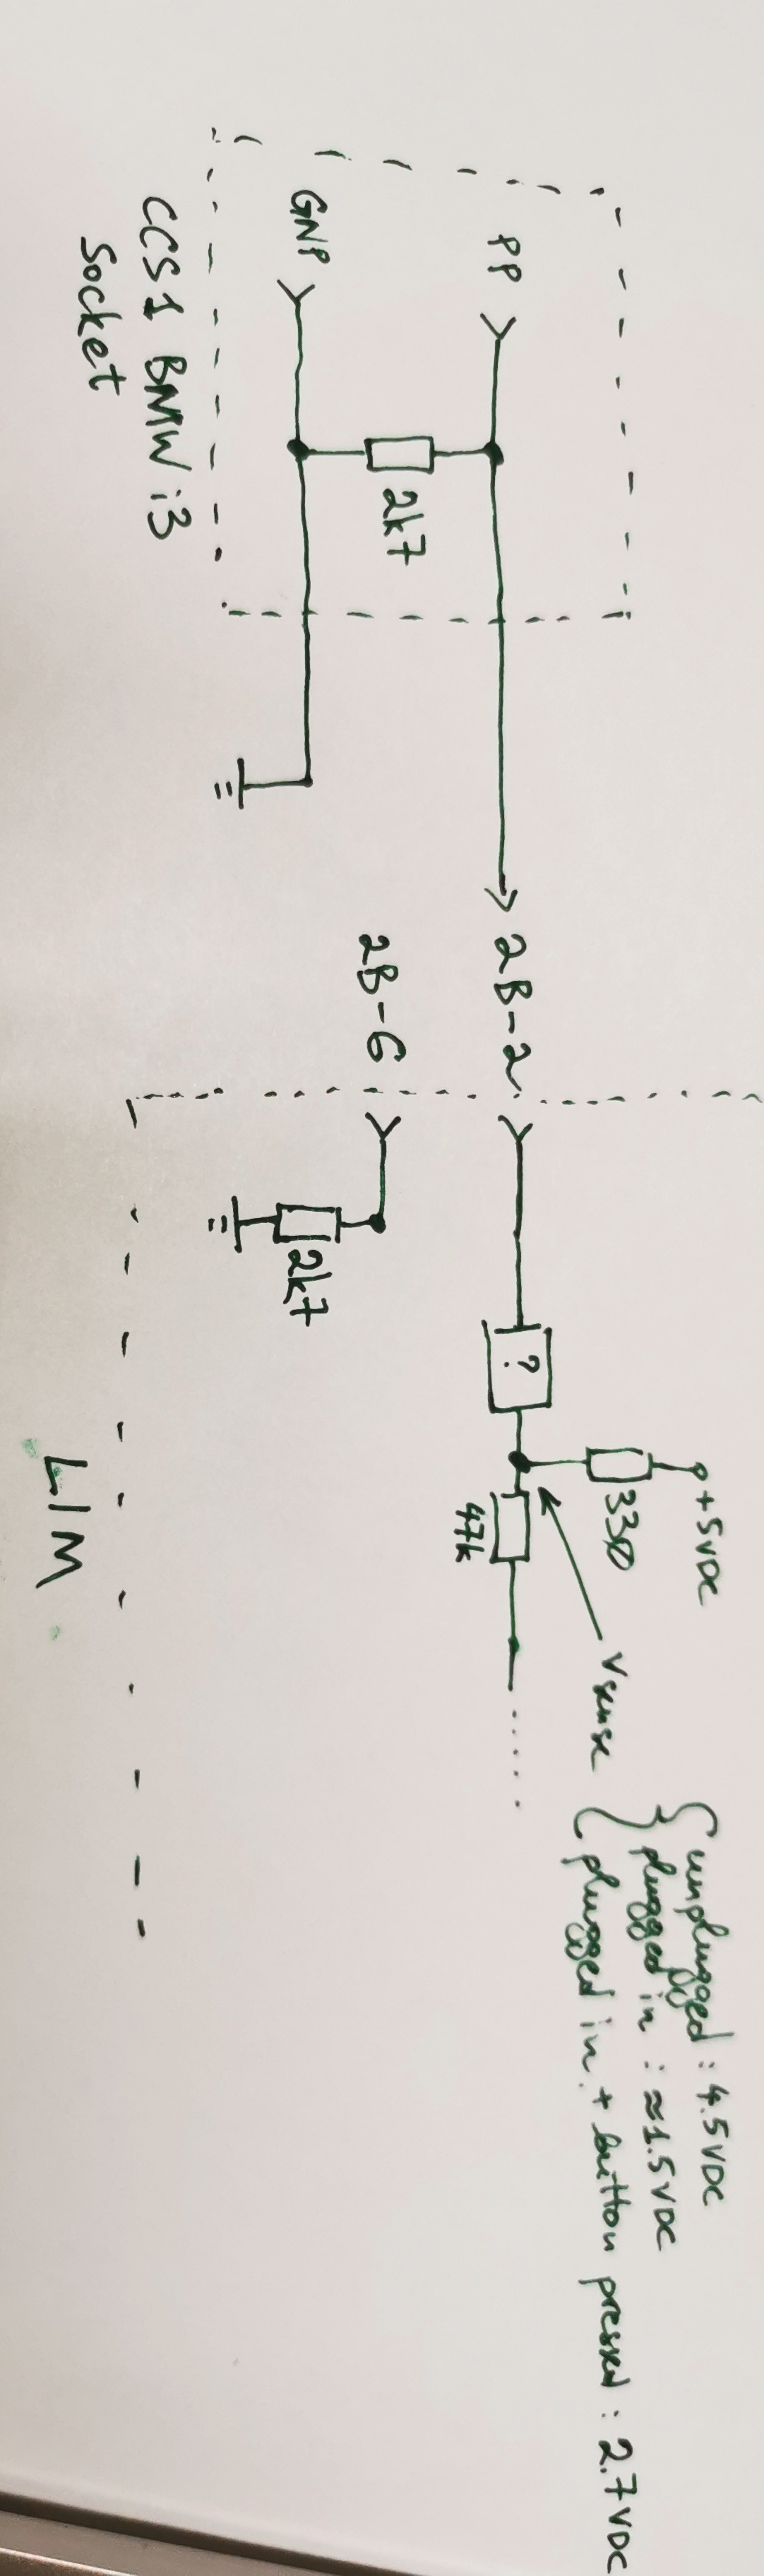 PP
GND
2k7
CCS1 BMW i3
Socket
2B-2
2B-6
2k7
?
+5VDC
330
47k
Vsense
unplugged : 4.5VDC
plugged in : ≈1.5VDC
plugged in + button pressed : 2.7VDC
LIM